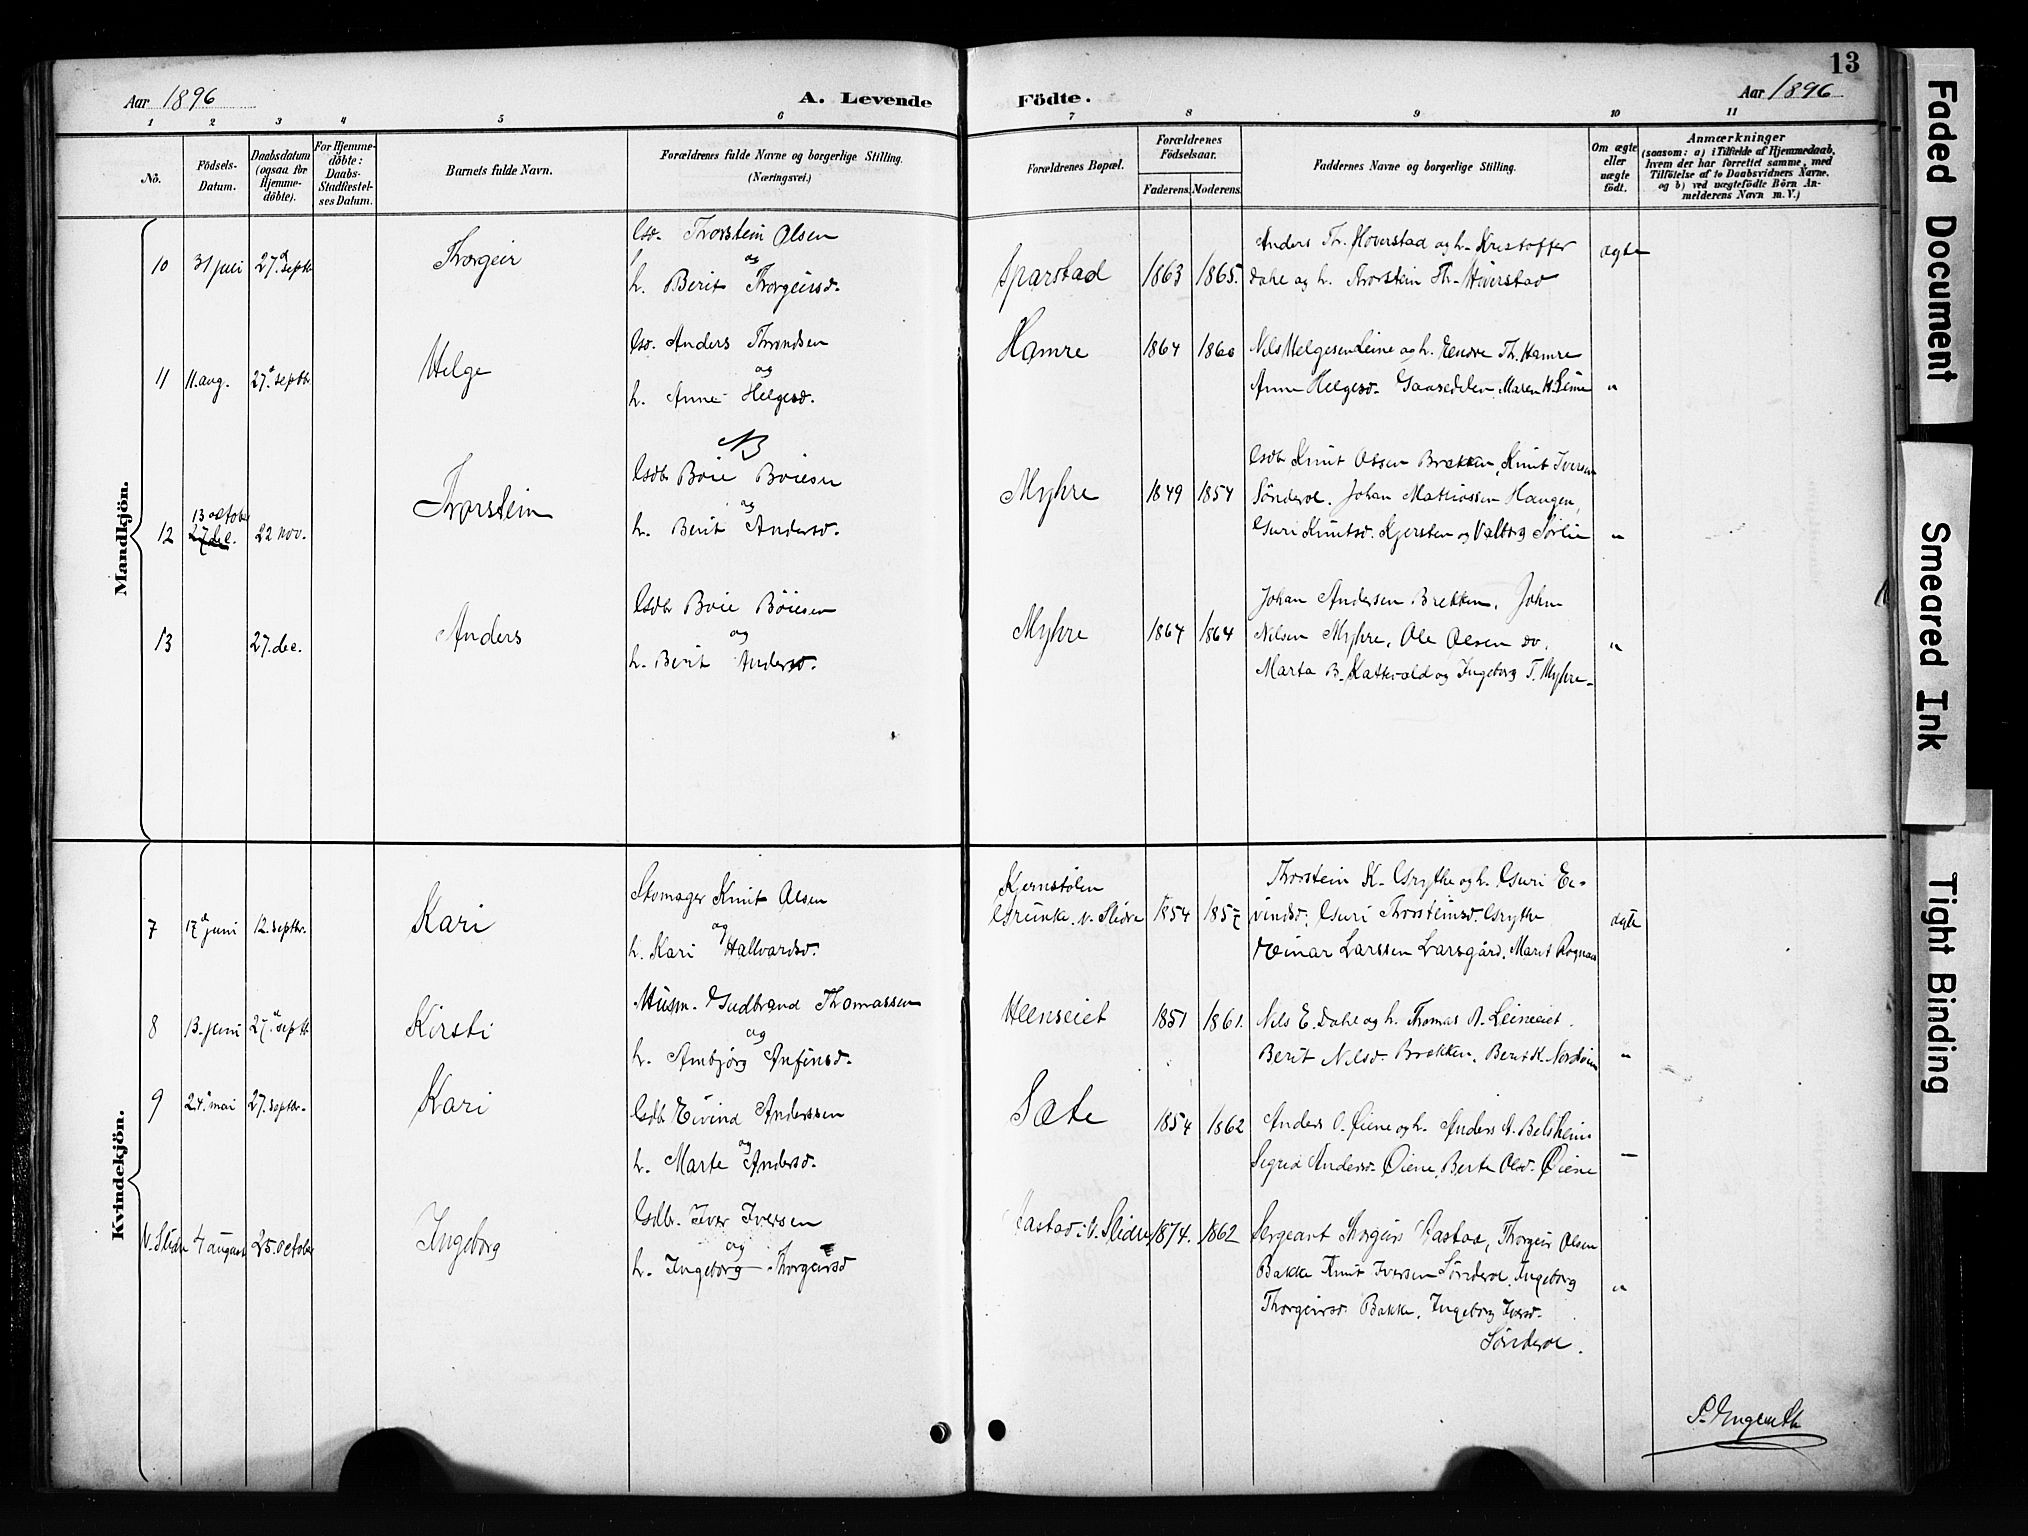 13
Aar 1896
A. Levende
Födte.
Aar 1896
1 2 3 4 5 6 7 8 9 10 11
Nö.
Födsels-
Datum.
Daabsdatum
(ogsaa for
Hjemme-
döbte).
For Hjemme-
döbte:
Daabs-
Stadfæstel-
ses Datum.
Barnets fulde Navn.
Forældrenes fulde Navne og borgerlige Stilling.
(Næringsvei.)
Forældrenes Bopæl.
Forældrenes
Födselsaar.
Faderens. Moderens.
Faddernes Navne og borgerlige Stilling.
Om ægte
eller
uægte
födt.
Anmærkninger
(saasom: a) i Tilfælde af Hjemmedaab,
hvem der har forrettet samme, med
Tilföielse af to Daabsvidners Navne,
og b) ved uægtefödte Börn An-
melderens Navn m. V.)
Mandkjön.
10 31 juli 27d septb Thorgeir
Thorstein Olsen
og
h. Berit Thorgeirsd.
1863 1865.
Anders Th. Höverstad og h. Kristoffer
Dahl og h. Thorstein Th. Höverstad
ægte
11 11. aug. 27d septbr Helge
Anders Throndsen
og
h. Anne Helgesd.
Hamre 1864 1860
Nils Helgesen Leine og h. Endre Th. Hamre
Anne Helgesd. Gaasedelen, Maren H. Leine
"
NB
12 13 october
27 dec. 22 nov. Thorstein
Gsdb Boie Boiesen
og
h. Berit Andersd.
Myhre 1849 1854
Gsdb Knut Olsen Brekken, Knut Iversen
Sönderol. Johan Mathiassen Haugen,
Guri Knutsd. Kjersten og Valborg Sörlie
"
13 27. dec. Anders
Gsdb Boie Böiesen
og
h. Berit Andersd.
Myhre 1864 1864
Johan Andersen Brekken, John
Nilsen Myhre, Ole Olsen do.
Marta B. Kattevold og Ingeborg T. Myhre
"
Kvindekjön.
7 17d juni 12. septbr. Kari
Skomager Knut Olsen
og
h. Kari Hallvardsd.
Kjernstölen
v. Slidre 1854 1857
Thorstein K. Grythe og h. Guri Ei-
vindsd. Guri Thorsteinsd. Grythe
Einar Larssen Larsgård. Marit Rognaas
ægte
8 13. juni 27d septb Kirsti
Husm. Gudbrand Thomassen
og
h. Ambjörg Anfinsd.
Heenseiet 1851 1861.
Nils E. Dahl og h. Thomas A. Leineeiet.
Berit Nilsd. Brekken, Berit K. Nordvin
"
9 24d mai 27. septbr. Kari
Gsdb Eivind Anderssen
og
h. Marte Andersd.
Sæte 1854 1862
Anders O. Øiene og h. Anders A. Belsheim
Sigrid Andersd. Øiene, Berte Olsd. Øiene
—
V. Slidre 4 august 25. october Ingeborg
Gsdbr. Iver Iversen
og
h. Ingeborg Thorgeirsd
Aastad i V. Slidre 1874. 1862
Sergeant Thorgeir Aastad, Thorgeir Olsen
Bakke Knut Iversen Sönderol, Ingeborg
Thorgeirsd. Bakke, Ingeborg Iversd.
Sönderol.
"
Faded Document
Smeared Ink
Tight Binding